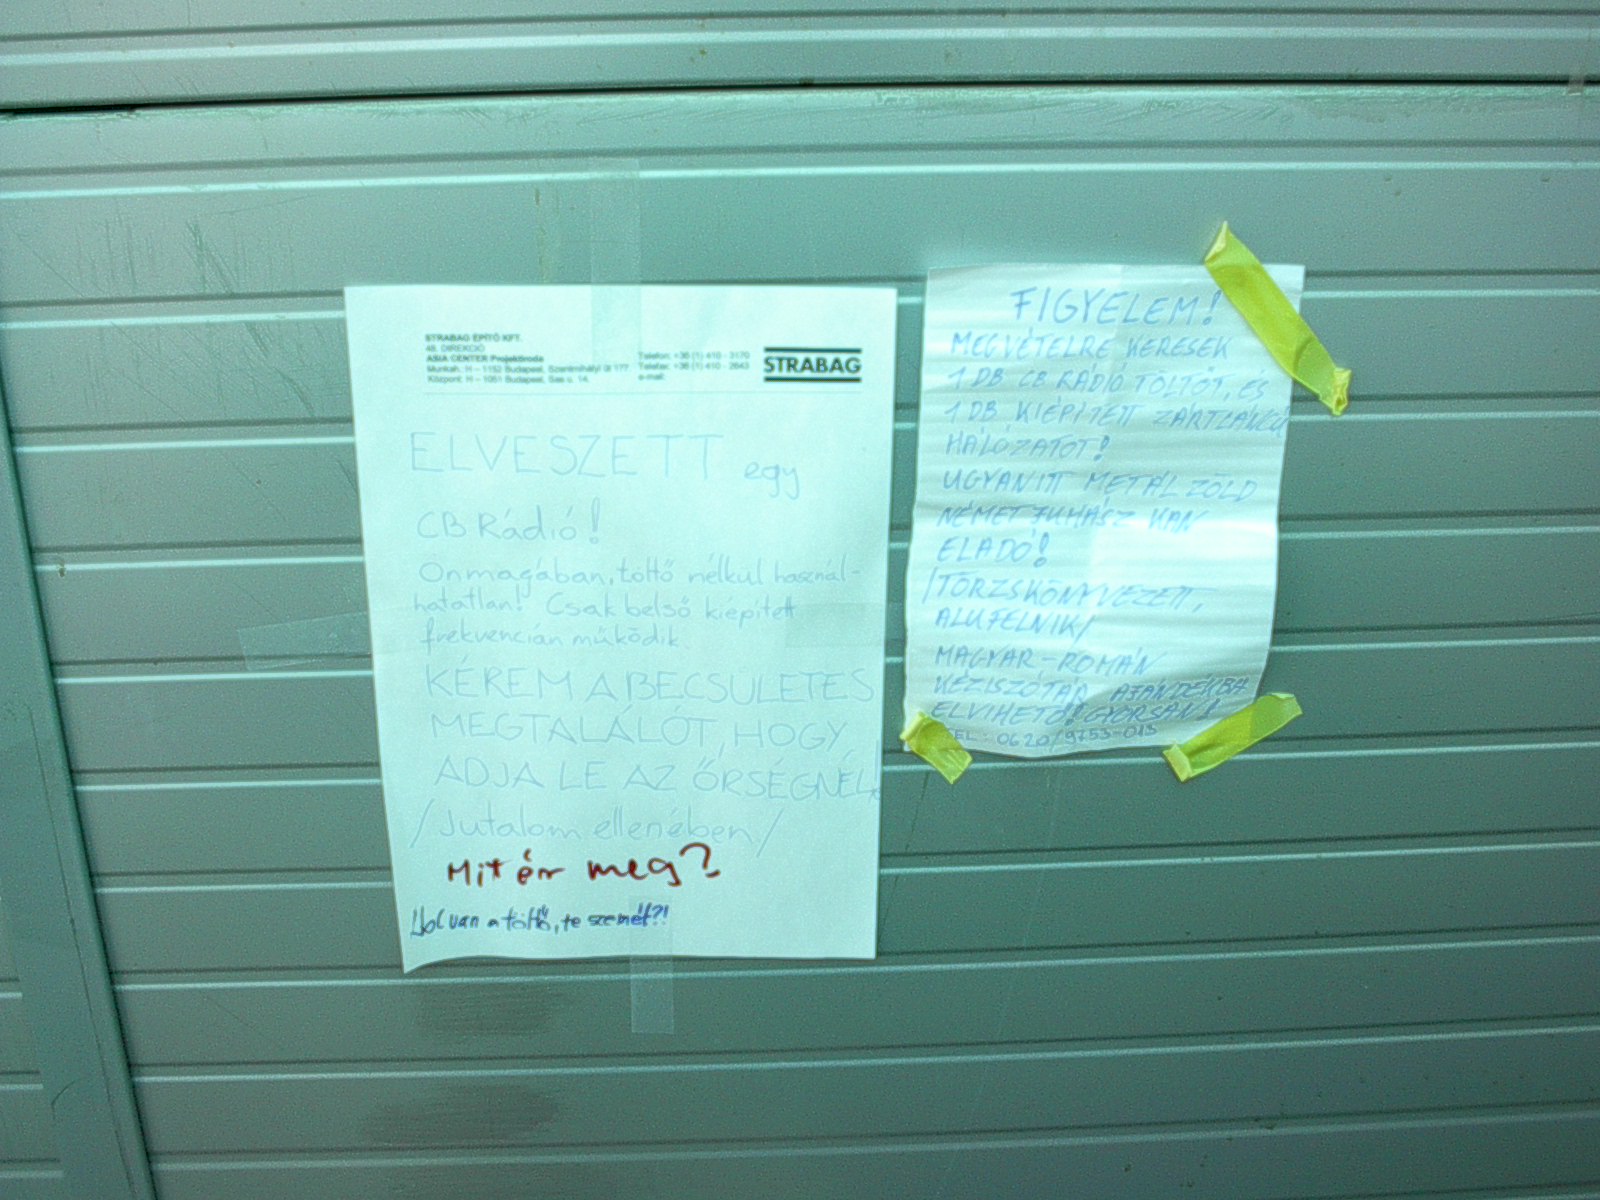 STRABAG ÉPÍTŐ KFT.
48. DIREKCIÓ
ASIA CENTER Projektiroda
Munkah.: H – 1152 Budapest, Szentmihályi út 177
Központ: H – 1051 Budapest, Sas u. 14.
Telefon: +36 (1) 410 - 3170
Telefax: +36 (1) 410 - 2643
e-mail:
STRABAG
ELVESZETT egy
CB Rádió!
Önmagában, töltő nélkül használ-
hatatlan! Csak belső kiépített
frekvencián működik
KÉREM A BECSÜLETES
MEGTALÁLÓT, HOGY
ADJA LE AZ ŐRSÉGNÉL
/Jutalom ellenében/
Mit ér meg?
Hol van a töltő, te szemét?!
FIGYELEM!
MEGVÉTELRE KERESEK
1 DB CB RÁDIÓ TÖLTŐT, ÉS
1 DB KIÉPÍTETT ZÁRTLÁNCÚ
HÁLÓZATOT!
UGYANITT METÁL ZÖLD
NÉMET JUHÁSZ KAN
ELADÓ!
/TÖRZSKÖNYVEZETT,
ALUFELNIK/
MAGYAR-ROMÁN
KÉZISZÓTÁR AJÁNDÉKBA
ELVIHETŐ! GYORSAN!
TEL: 0620/9753-015